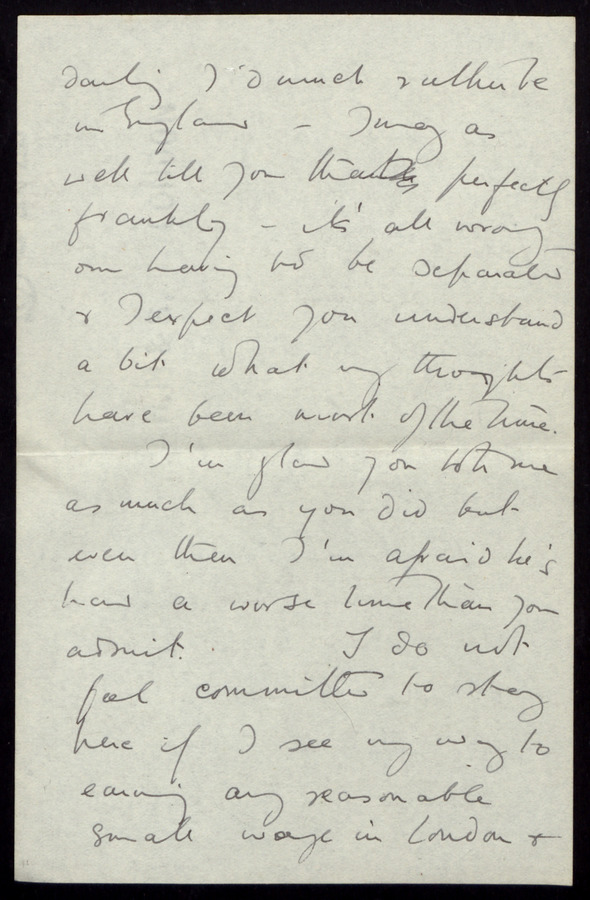 darling I'd much rather be
in England - I may as
well tell you that perfectly
frankly - it's all wrong
our having to be separated
& I expect you understand
a bit what my thoughts
have been most of the time.
I'm glad you told me
as much as you did but
even then I'm afraid he's
had a worse time than you
admit. I do not
feel committed to stay
here if I see my way to
earning any reasonable
small wage in London &